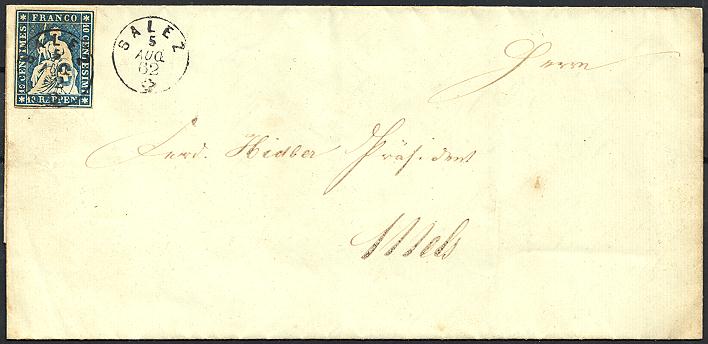 FRANCO
10 CENTIMES
10 CENTESIMI
10 RAPPEN
SALEZ
5
AUG
62
Herrn
Ferd. Hidber Präsident
Mels